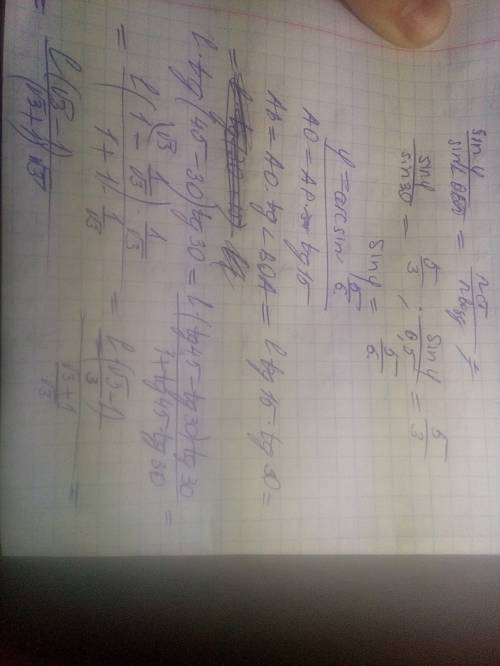 sin γ / sin 30 = 5/3 ; sin γ / 0,5 = 5/3
sin γ = 5/6
γ = arcsin 5/6
AO = AP · tg 15
AB = AO · tg &lt; BOA = l · tg 15 · tg 30 =
l · tg (45 − 30) tg 30 = l · (tg 45 − tg 30) tg 30 / 1 + tg 45 · tg 30 =
= l (1 − 1/√3) · 1/√3 / 1 + 1 · 1/√3 = l (√3 − 1) / 3 / √3 + 1 / √3 =
= l (√3 − 1) / (√3 + 1) √3